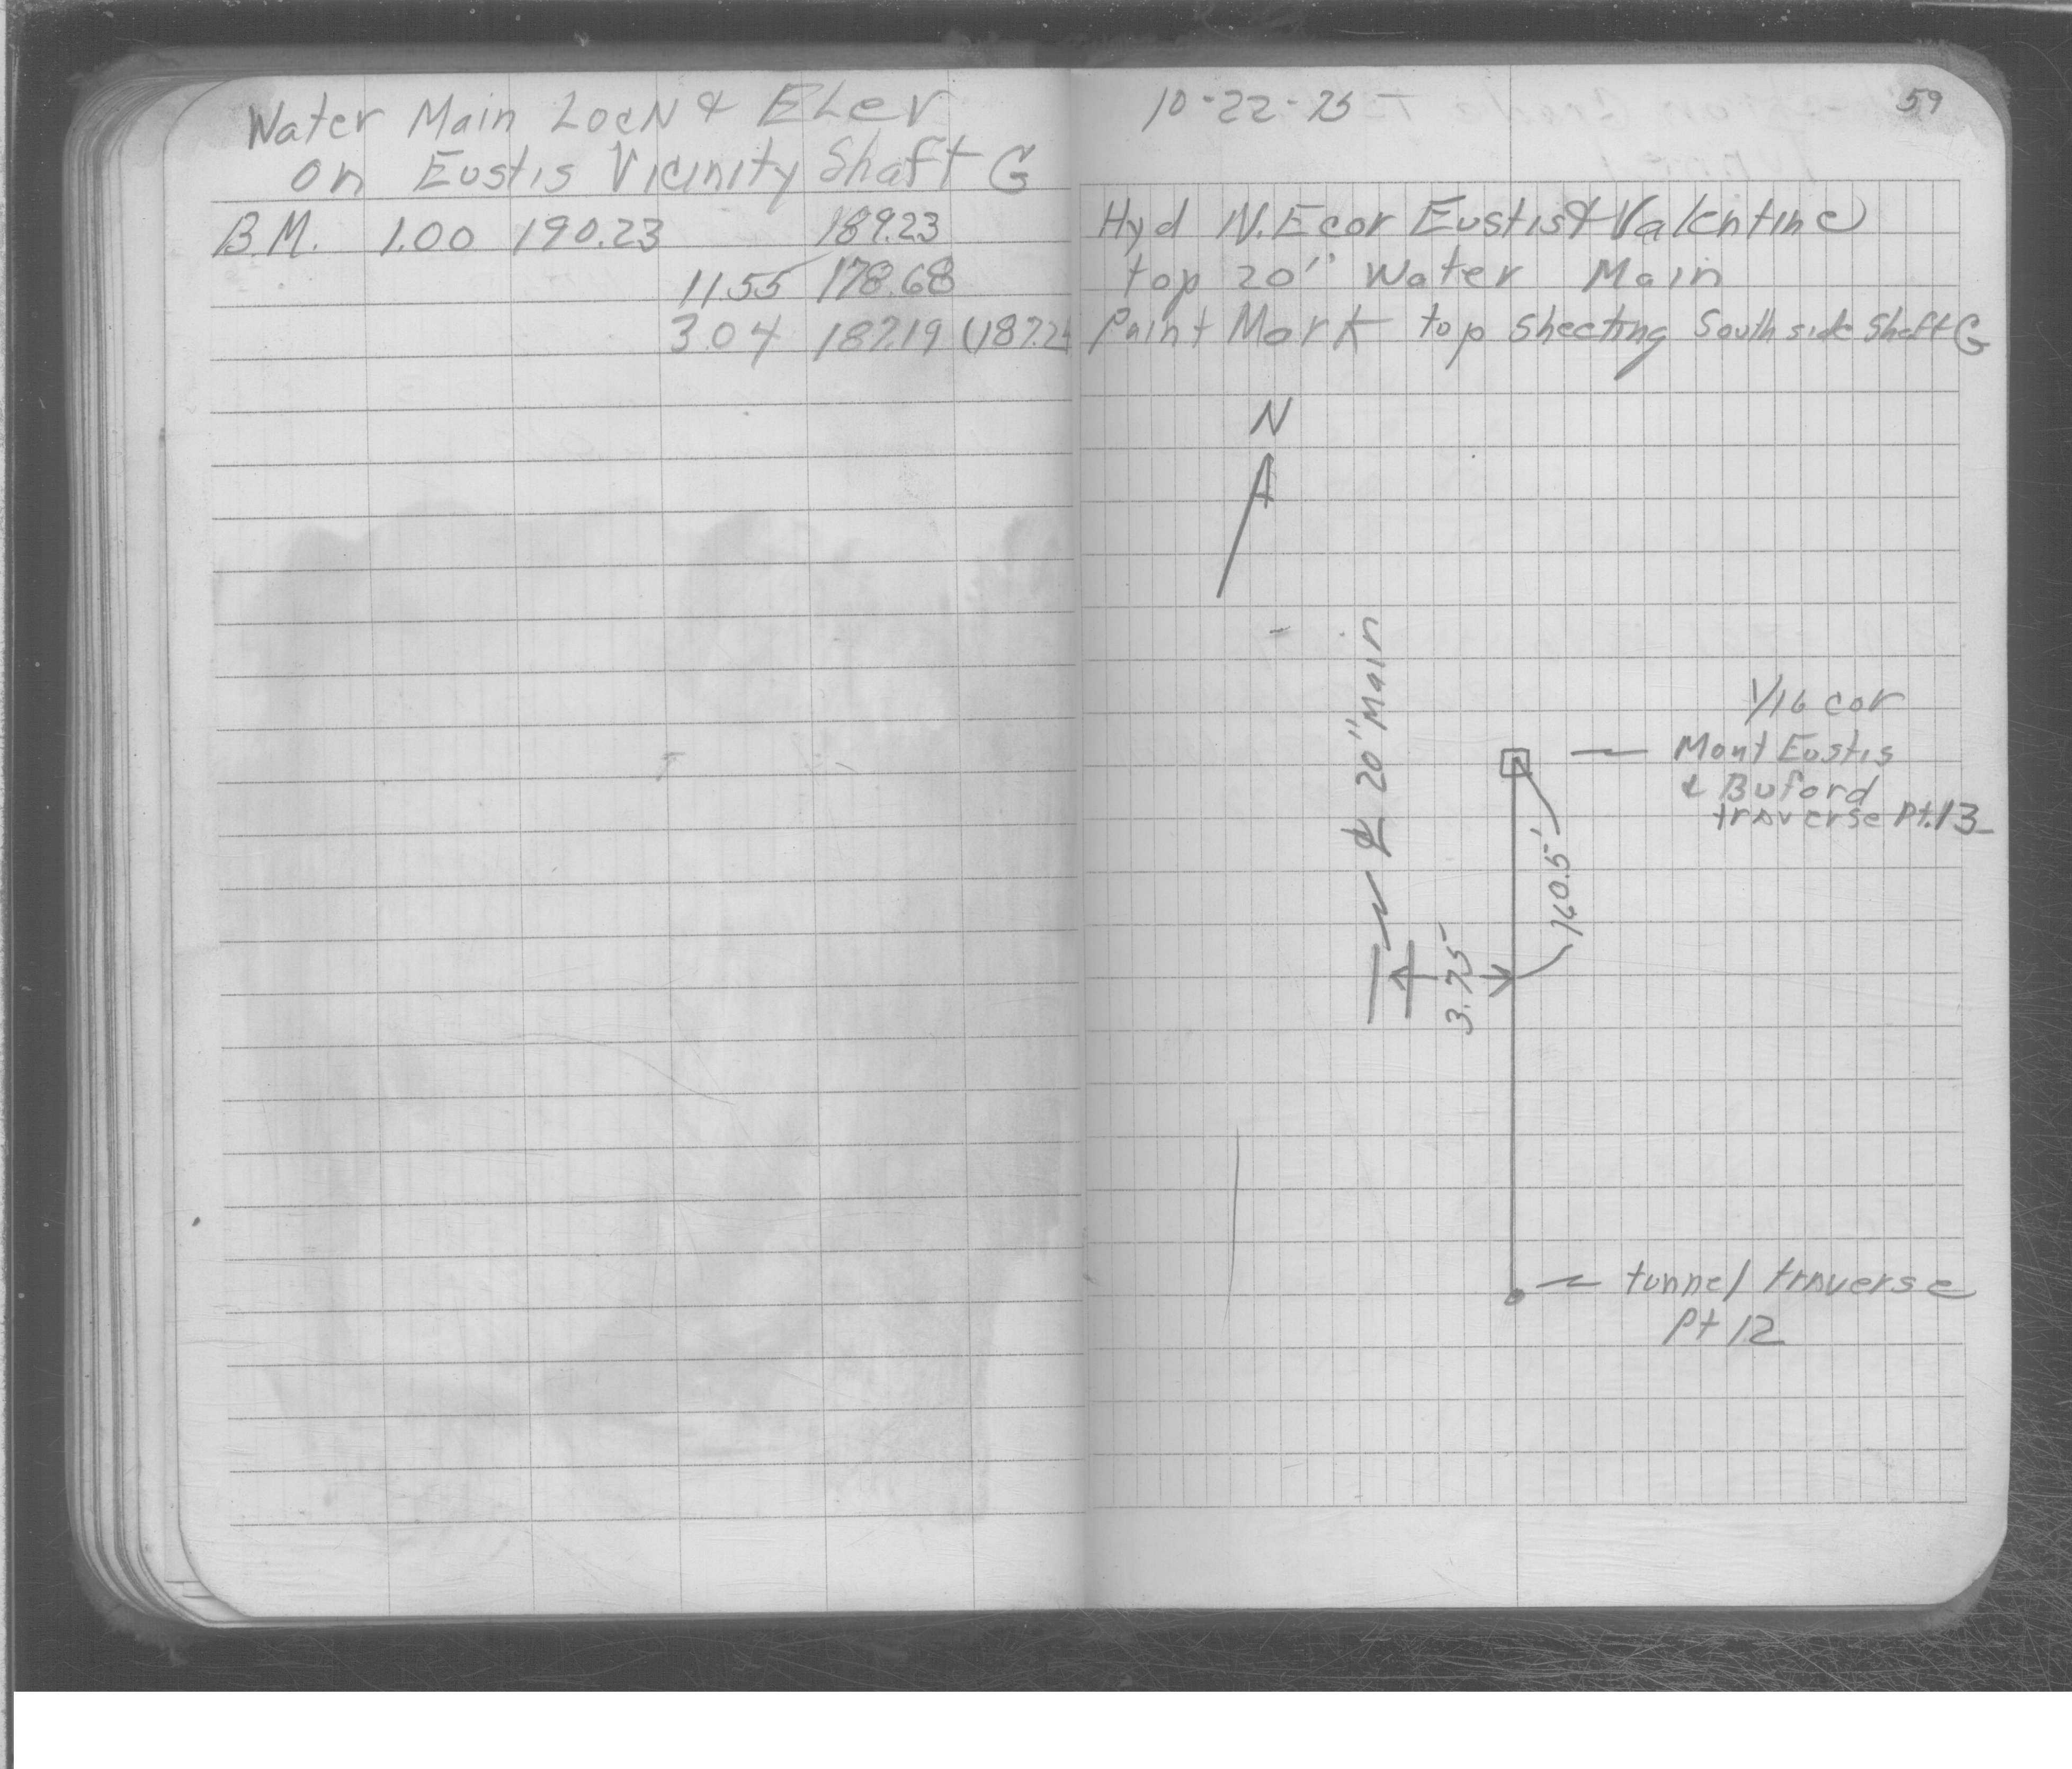 Water Main LocN & ELev
on Eustis Vicinity Shaft G
B.M. 1.00 190.23 189.23
11.55 178.68
3.04 187.19 (187.2
10-22-75
59
Hyd N.E cor Eustis & Valentine
top 20" Water Main
Paint Mark top sheeting South side Shaft G
N
℄ 20" Main
1/16 cor
Mont Eustis
& Buford
traverse Pt.13
160.5'
3.75'
tunnel traverse
Pt 12